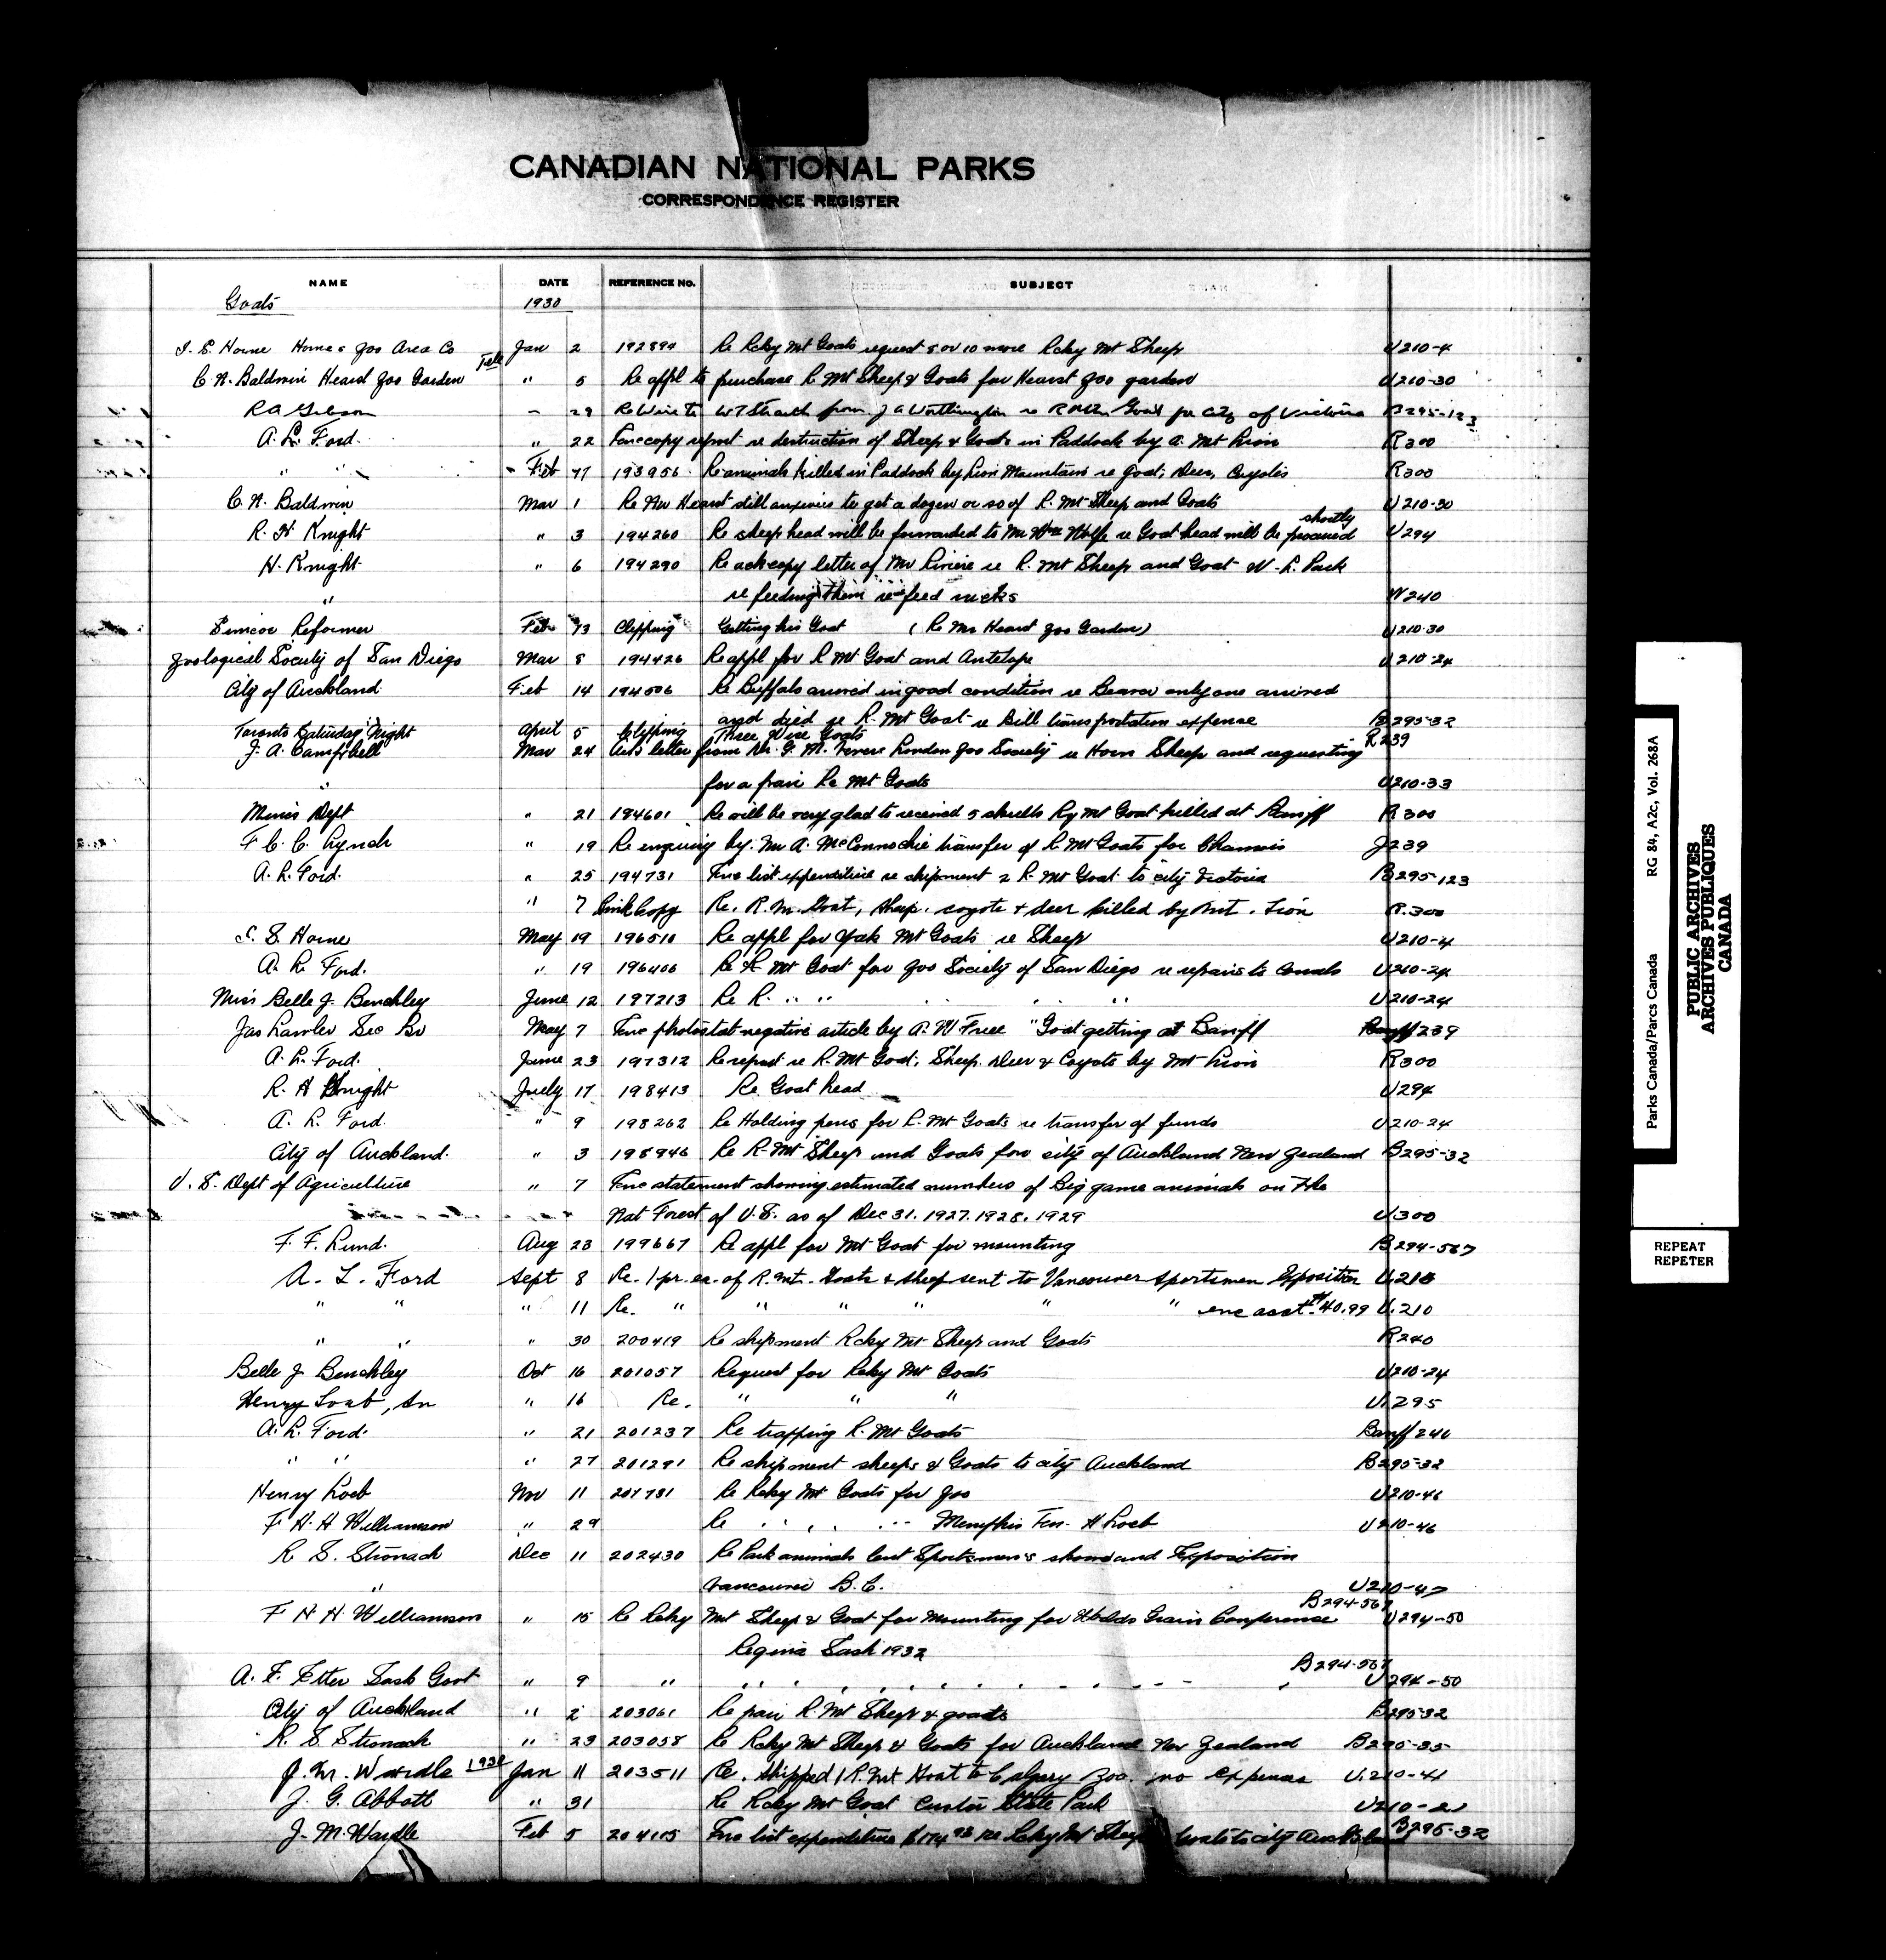 CANADIAN NATIONAL PARKS
CORRESPONDENCE REGISTER
NAME DATE REFERENCE No. SUBJECT
Goats 1930
J. E. Horne Horne's Zoo Area Co Jan 2 192899 Re Rcky Mt Goats request 5 or 10 more Rcky Mt Sheep U210-4
C. A. Baldwin Heard Zoo Garden " 5 Re appl to purchase R Mt Sheep & Goats for Hearst Zoo garden U210-30
RA Gibson 29 Re Wire to from J A Worthington re Goat for City of Victoria B295-123
A. L. Ford. " 22 Enc copy report re destruction of Sheep & Goats in Paddock by a Mt Lion R300
" " Feb 17 193956 Re animals killed in Paddock by Lion Mountain re goat, Deer, Coyotes R300
C. A. Baldwin Mar 1 Re Mr Hearst still anxious to get a dozen or so of R. Mt Sheep and Goats U210-30
R. H Knight " 3 194260 Re sheep head will be forwarded to Mr Wolfe re Goat head will be procured shortly U294
H. Knight " 6 194290 Re ack copy letter of Mr Riviere re R. Mt Sheep and Goat W. L. Park
" re feeding them re feed racks W240
Simcoe Reformer Feb 13 Clipping Getting his Goat (Re Mr Heard Zoo Garden) U210-30
Zoological Society of San Diego Mar 8 194426 Re appl for R Mt Goat and Antelope U210-24
City of Auckland Feb 14 194506 Re Buffalo arrived in good condition re Beaver only one arrived
and died re R. Mt Goat re Bill transportation expense B295-32
Toronto Saturday Night April 5 Clipping Three Wise Goats R239
J. A. Campbell Mar 24 letter from Mr. G. M. Vevers London Zoo Society re Horn Sheep and requesting
" for a pair Re Mt Goats U210-33
Mines Dept " 21 194601 Re will be very glad to received 5 skulls Ry Mt Goat killed at Banff R300
F. C. C. Lynch " 19 Re enquiry by Mr A. McConnochie transfer of R Mt Goats for Chamois J239
A. L. Ford. " 25 194731 Enc list expenditure re shipment 2 R. Mt Goat to city Victoria B295-123
" 7 Pink Copy Re. R. M. Goat, sheep, coyote & deer killed by Mt. Lion R.300
J. S. Horne May 19 196510 Re appl for Yak Mt Goats re Sheep U210-4
A. L. Ford. " 19 196406 Re R Mt Goat for Zoo Society of San Diego re repairs to Corrals U210-24
Miss Belle J. Benchley June 12 197213 Re R. " " " " " U210-24
Jas Lawler May 7 Enc photostat negative article by A. W. Free "Goat getting at Banff 239
A. L. Ford. June 23 197312 Re report re R. Mt Goat, Sheep, Deer & Coyote by Mt Lion R300
R. H Knight July 17 198413 Re Goat head U294
A. L. Ford. " 9 198262 Re Holding pens for R. Mt Goats re transfer of funds U210-24
City of Auckland. " 3 198946 Re R. Mt Sheep and Goats for city of Auckland New Zealand B295-32
U. S. Dept of Agriculture " 7 Enc statement showing estimated numbers of Big game animals on the
Nat Forest of U.S. as of Dec 31. 1927. 1928. 1929 U300
F. F. Lund. Aug 23 199667 Re appl for Mt Goat for mounting B294-567
A. L. Ford Sept 8 Re. 1 pr. ea. of R. Mt. Goats & sheep sent to Vancouver sportsmen Exposition U.210
" " " 11 Re. " " " " " " enc acct. $40.99 U.210
" " " 30 200419 Re shipment Rcky Mt Sheep and Goats R240
Belle J Benchley Oct 16 201057 Request for Rcky Mt Goats U210-24
Henry Loeb, Sr " 16 Re. " " " U.295
A. L. Ford. " 21 201237 Re trapping R. Mt Goats Banff 240
" " " 27 201291 Re shipment sheeps & Goats to city Auckland B295-32
Henry Loeb Nov 11 201731 Re Rcky Mt Goats for Zoo U210-46
F. H. H Williamson " 29 Re " " " " Memphis Ten. H Loeb U210-46
R. S. Stronach Dec 11 202430 Re Park animals lent Sportsmen's show and Exposition
" Vancouver B. C. U210-47
F H H Williamson " 15 Re Rcky Mt Sheep & Goat for Mounting for Worlds Grain Conference B294-567 U294-50
Regina Sask 1932
A. F. Etter Sask Govt " 9 " " " " " " B294-567 U294-50
City of Auckland " 2 203061 Re pair R. Mt Sheep & goats B295-32
R. S. Stronach " 23 203058 Re Rcky Mt Sheep & Goats for Auckland New Zealand B295-35
J. M. Wardle Jan 11 203511 Re. shipped 1 R. Mt Goat to Calgary Zoo. no expenses U.210-41
J. G. Abbott " 31 Re Rcky Mt Goat Custer State Park
J. M. Wardle Feb 5 204105 Enc list expenditure re Rcky Mt Sheep Goats to city Auckland B295-32
Parks Canada/Parcs Canada RG 84, A2c, Vol. 268A
PUBLIC ARCHIVES
ARCHIVES PUBLIQUES
CANADA
REPEAT
REPETER